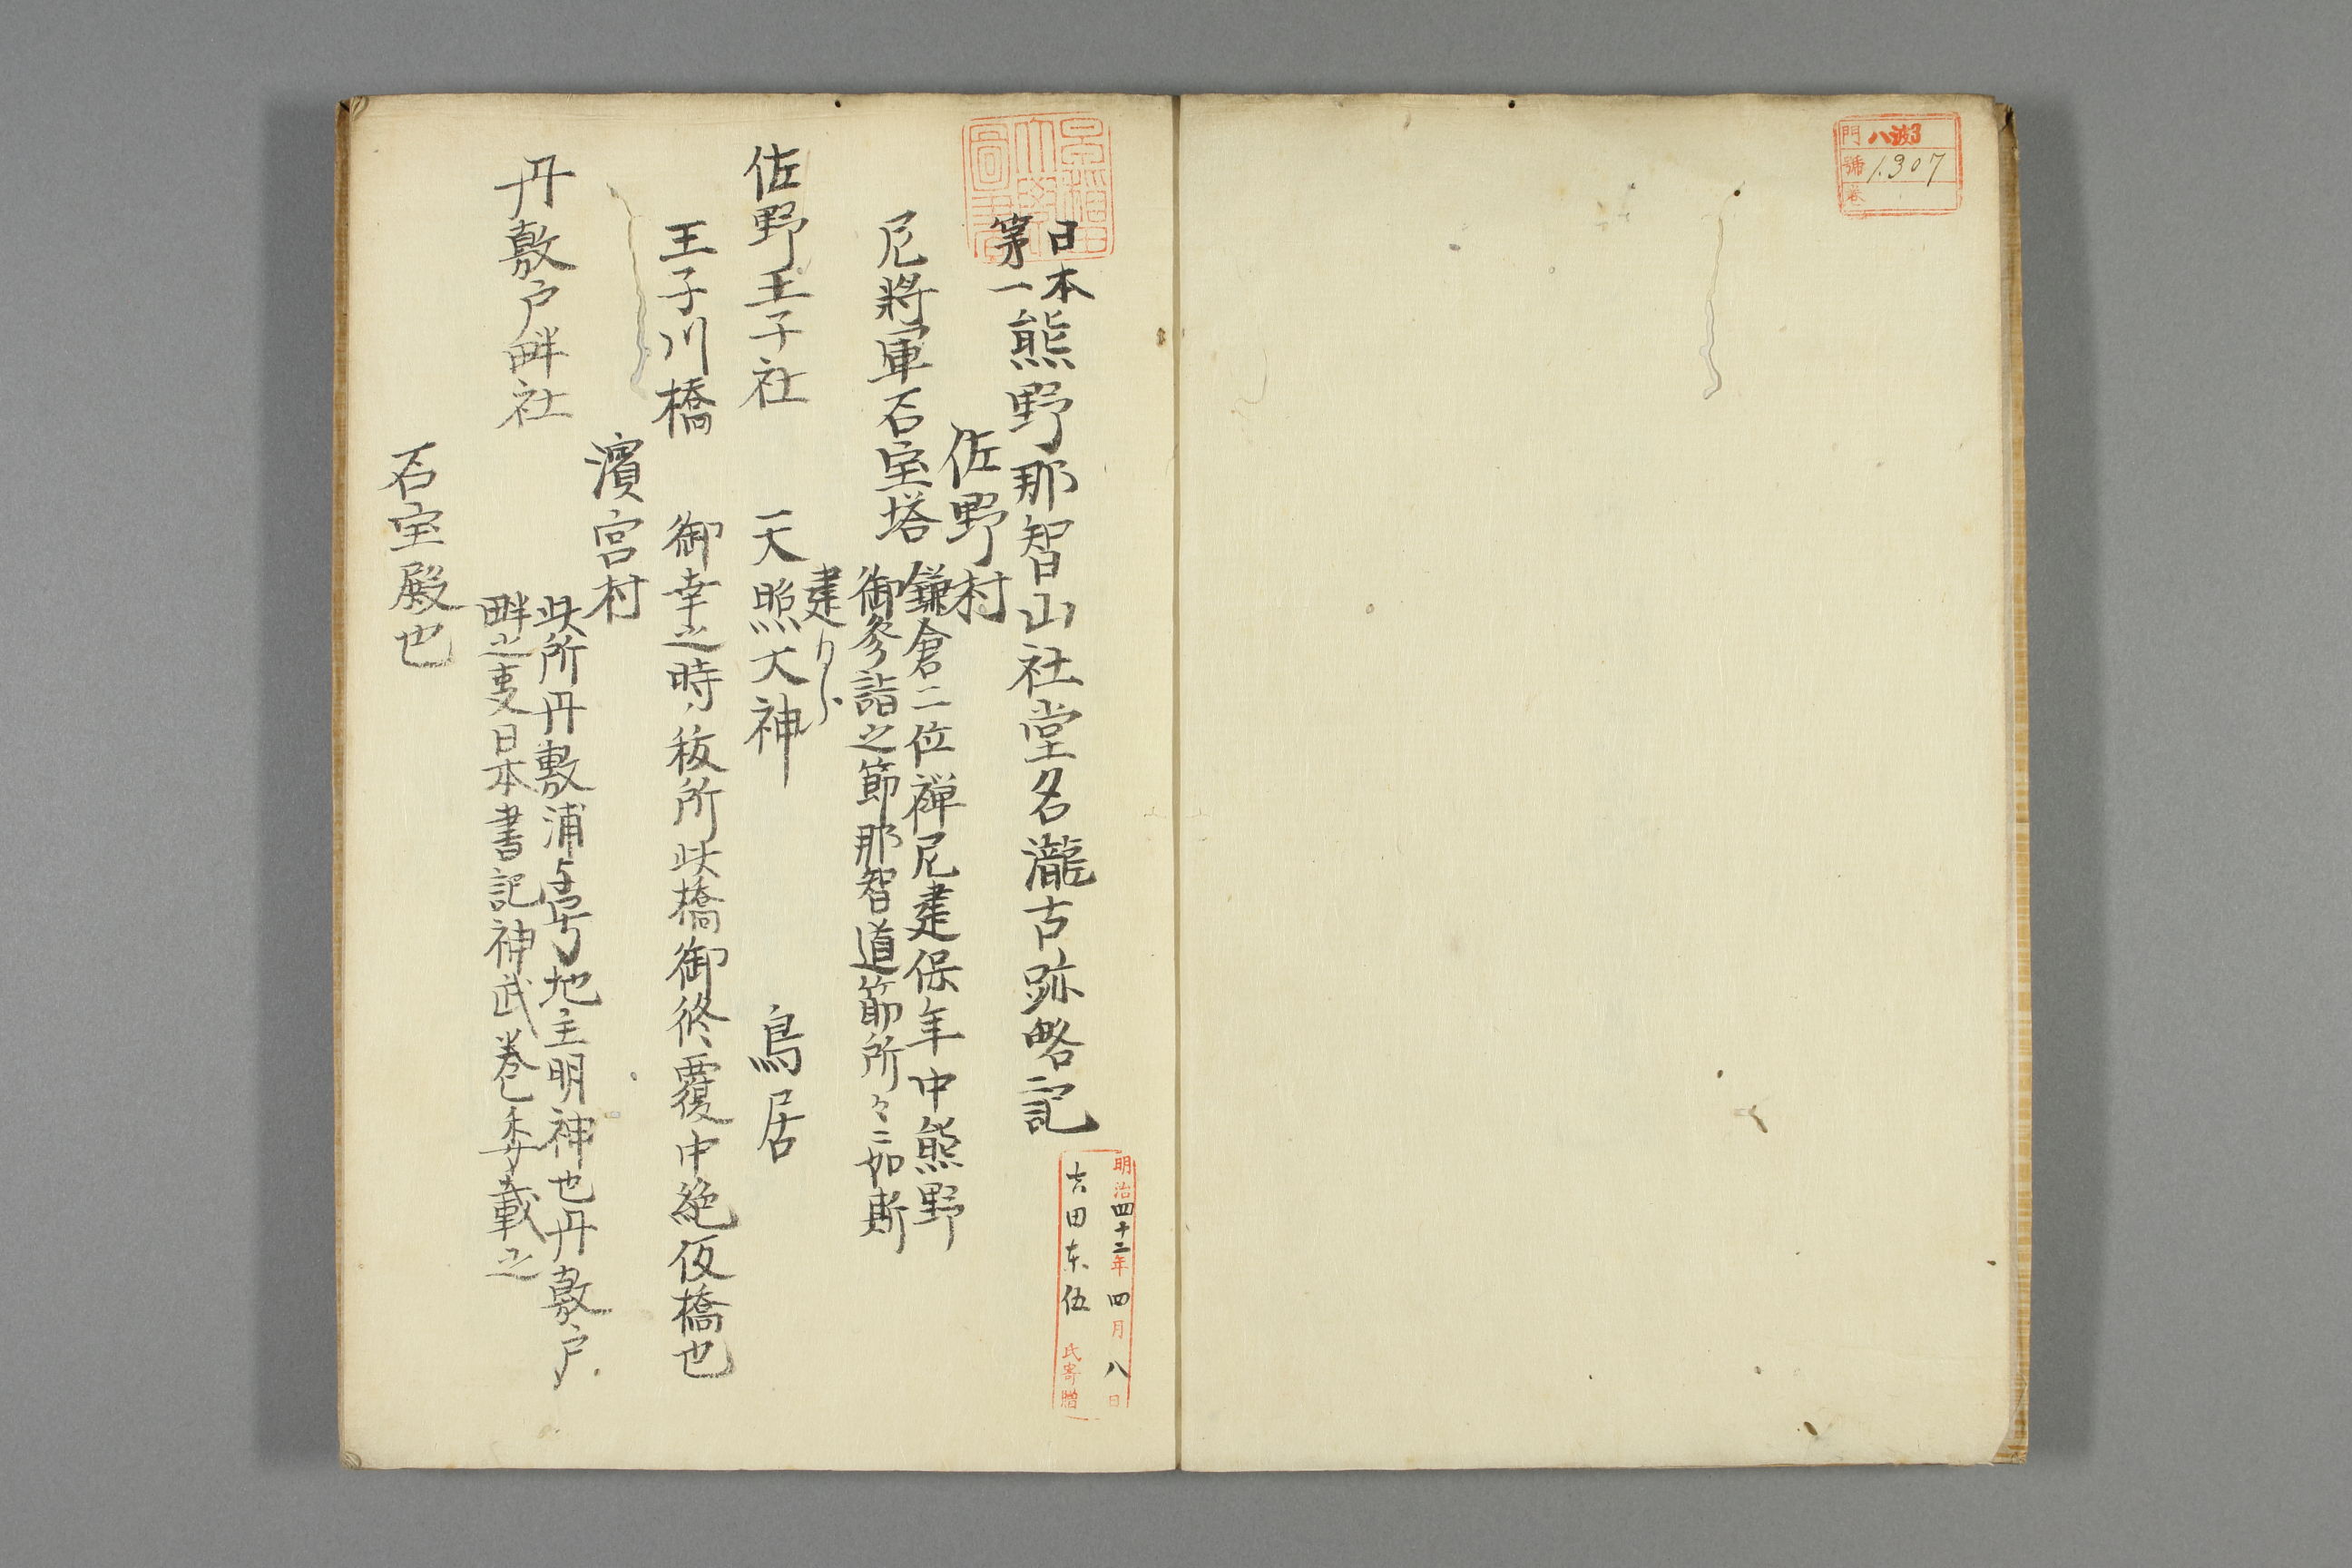 門 八瀫3
號 1307
卷
日本
第一熊野那智山社堂名瀧古跡略記
明治四十二年四月八日
吉田东伍氏寄贈
佐野村
尼將軍石室塔
鎌倉二位禅尼建保年中熊野
御参詣之節那智道節所々ニ如斯
建
佐野王子社 天照大神 鳥居
王子川橋 御幸之時秡所此橋御修覆中絶仮橋也
濱宮村
丹敷戸畔社
此所丹敷浦与号地主明神也丹敷戸
畔之支日本書記神武巻ニ委載之
石室殿也